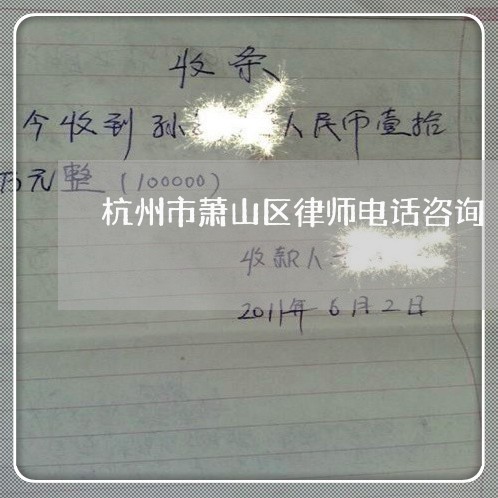 收条
今收到孙 人民币壹拾
万元整(100000)
杭州市萧山区律师电话咨询
收款人
2011年6月2日